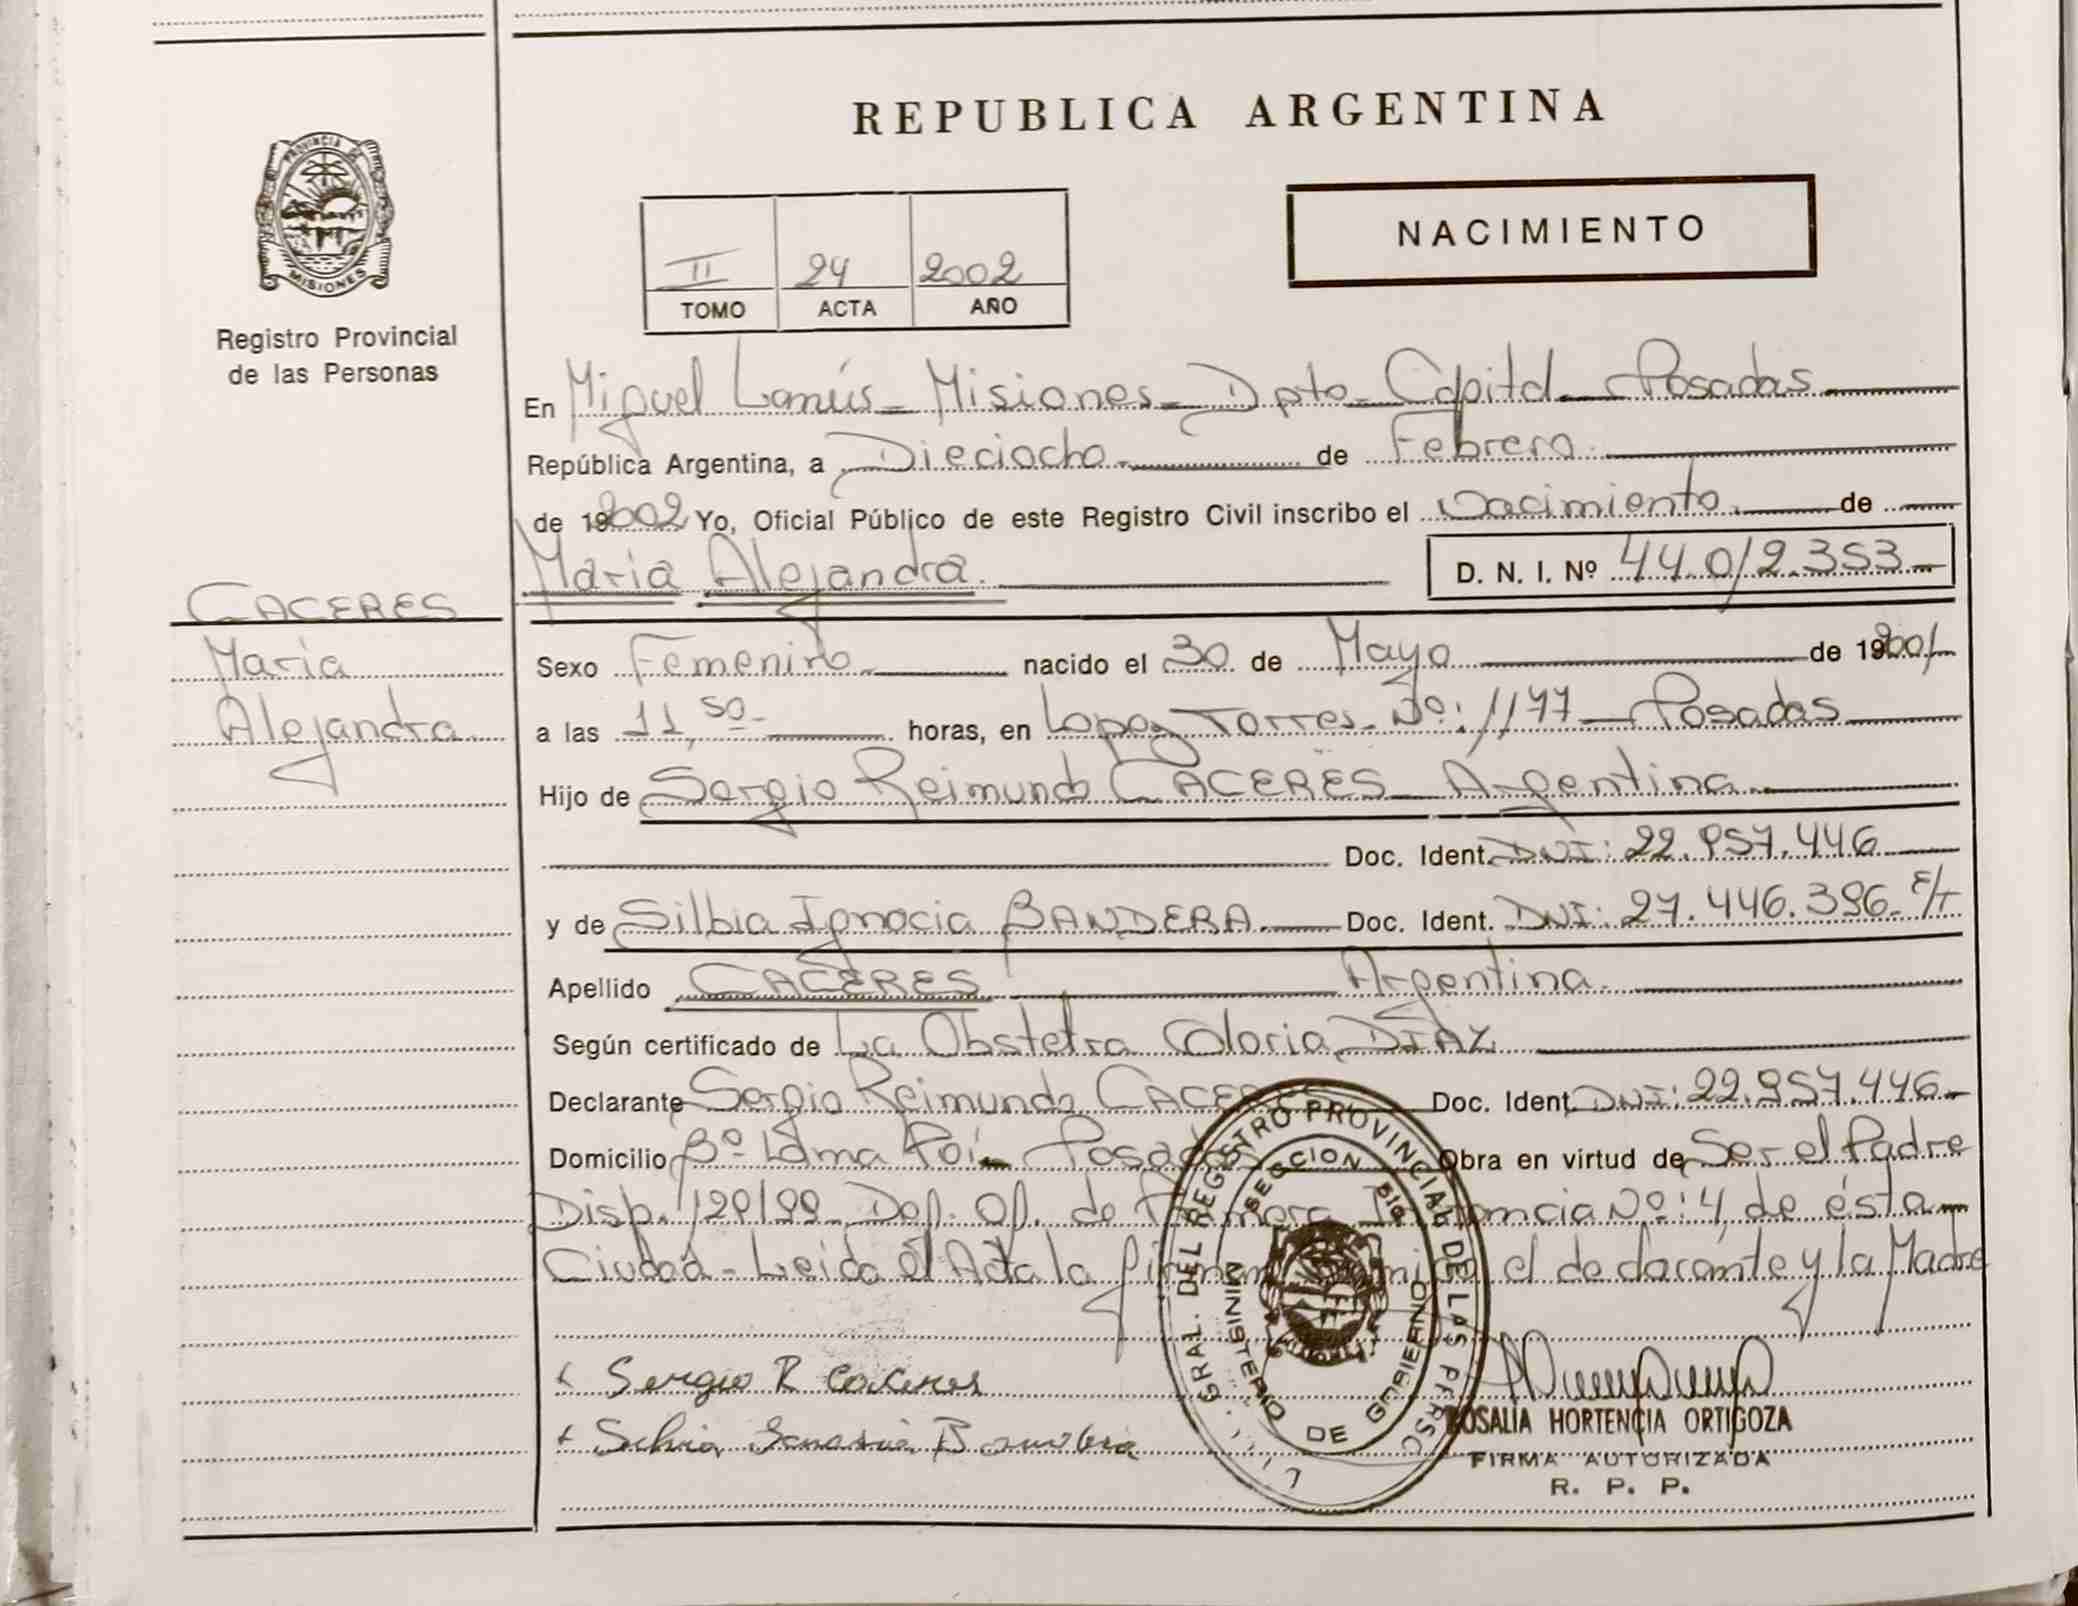 REPUBLICA ARGENTINA
PROVINCIA DE
MISIONES
Registro Provincial
de las Personas
NACIMIENTO
II 24 2002
TOMO ACTA AÑO
En Miguel Lanús - Misiones - Dpto - Capital - Posadas
República Argentina, a Dieciocho de Febrero
de 192002 Yo, Oficial Público de este Registro Civil inscribo el Nacimiento de
María Alejandra. D. N. I. Nº 44.012.353
CACERES
María
Alejandra.
Sexo Femenino nacido el 30 de Mayo de 192001
a las 11,50 horas, en Lopez Torres Nº: 1177 - Posadas
Hijo de Sergio Reimundo CACERES - Argentina
Doc. Ident. DNI: 22.957.446
y de Silbia Ignacia BANDERA. Doc. Ident. DNI: 27.446.396 E/T
Apellido CACERES Argentina.
Según certificado de La Obstetra Gloria DIAZ
Declarante Sergio Reimundo CACERES Doc. Ident. DNI: 22.957.446
Domicilio Bº Loma Poí - Posadas Obra en virtud de Ser el Padre
Disp. 129/99 Def. Of. de Primera Instancia Nº: 4 de ésta
Ciudad - Leida el Acta la firman el declarante y la Madre
Sergio R Caceres
Silvia Ignacia Bandera
GRAL. DEL REGISTRO PROVINCIAL DE LAS PERSO
MINISTERIO DE GOBIERNO
SECCION
ROSALIA HORTENCIA ORTIGOZA
FIRMA AUTORIZADA
R. P. P.